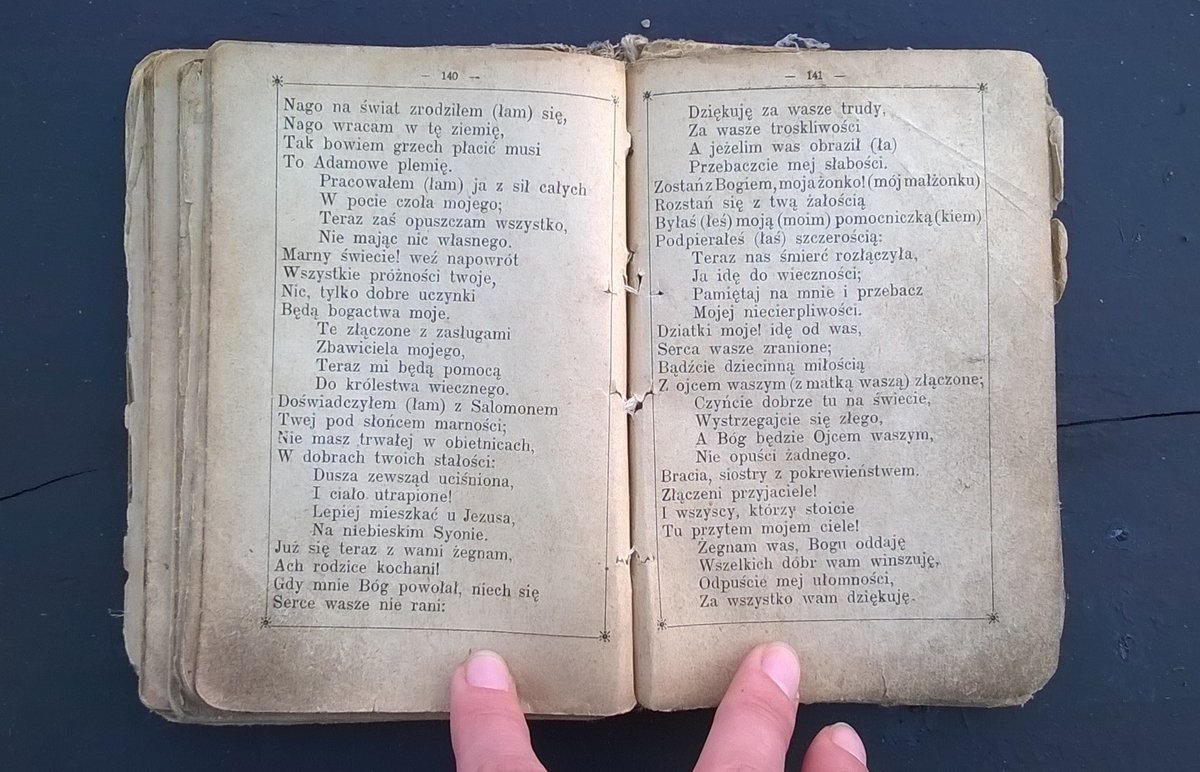 — 140 —
Nago na świat zrodziłem (łam) się,
Nago wracam w tę ziemię,
Tak bowiem grzech płacić musi
To Adamowe plemię.
Pracowałem (łam) ja z sił całych
W pocie czoła mojego;
Teraz zaś opuszczam wszystko,
Nie mając nic własnego.
Marny świecie! weź napowrót
Wszystkie próżności twoje,
Nic, tylko dobre uczynki
Będą bogactwa moje.
Te złączone z zasługami
Zbawiciela mojego,
Teraz mi będą pomocą
Do królestwa wiecznego.
Doświadczyłem (łam) z Salomonem
Twej pod słońcem marności;
Nie masz trwałej w obietnicach,
W dobrach twoich stałości:
Dusza zewsząd uciśniona,
I ciało utrapione!
Lepiej mieszkać u Jezusa,
Na niebieskim Syonie.
Już się teraz z wami żegnam,
Ach rodzice kochani!
Gdy mnie Bóg powołał, niech się
Serce wasze nie rani:
— 141 —
Dziękuję za wasze trudy,
Za wasze troskliwości
A jeżelim was obraził (ła)
Przebaczcie mej słabości.
Zostań z Bogiem, moja żonko! (mój małżonku)
Rozstań się z twą żałością
Byłaś (łeś) moją (moim) pomocniczką (kiem)
Podpierałeś (łaś) szczerością:
Teraz nas śmierć rozłączyła,
Ja idę do wieczności;
Pamiętaj na mnie i przebacz
Mojej niecierpliwości.
Dziatki moje! idę od was,
Serca wasze zranione;
Bądźcie dziecinną miłością
Z ojcem waszym (z matką waszą) złączone;
Czyńcie dobrze tu na świecie,
Wystrzegajcie się złego,
A Bóg będzie Ojcem waszym,
Nie opuści żadnego.
Bracia, siostry z pokrewieństwem.
Złączeni przyjaciele!
I wszyscy, którzy stoicie
Tu przytem mojem ciele!
Żegnam was, Bogu oddaję
Wszelkich dóbr wam winszuję,
Odpuście mej ułomności,
Za wszystko wam dziękuję.